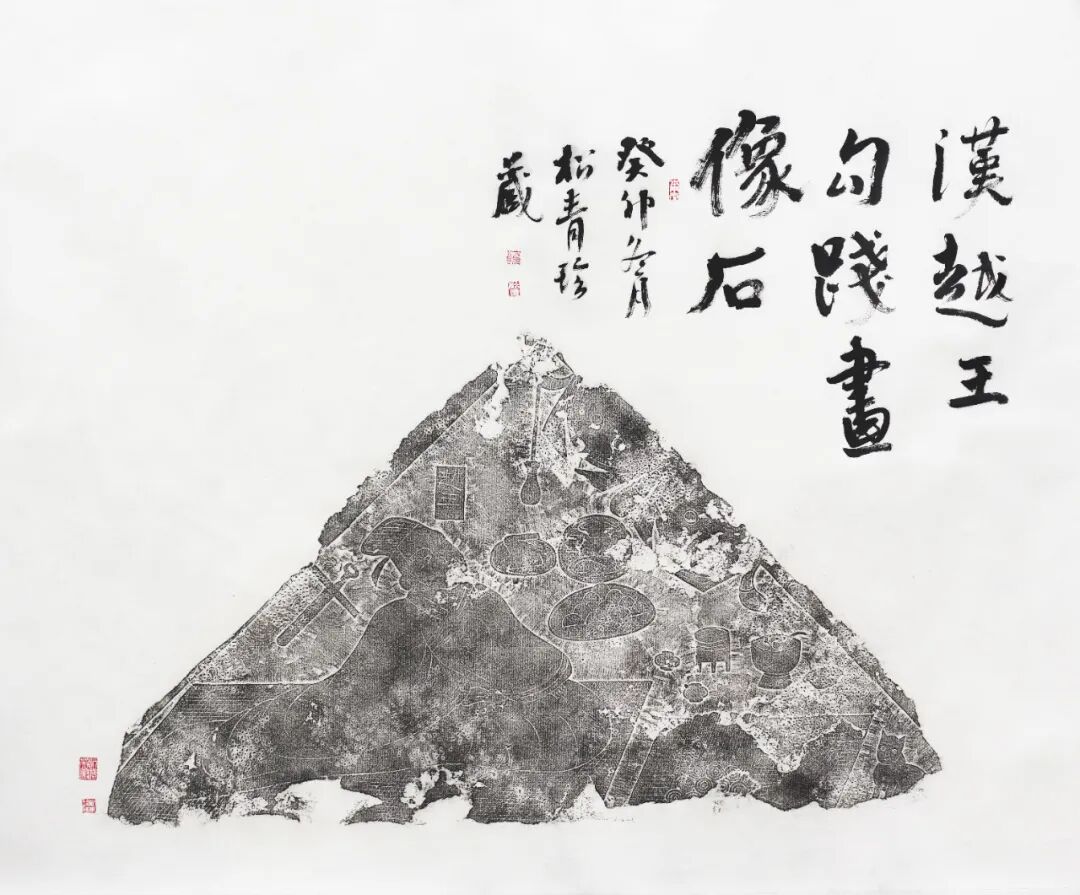 漢越王
勾踐畫
像石
癸卯冬月
松青珍
藏